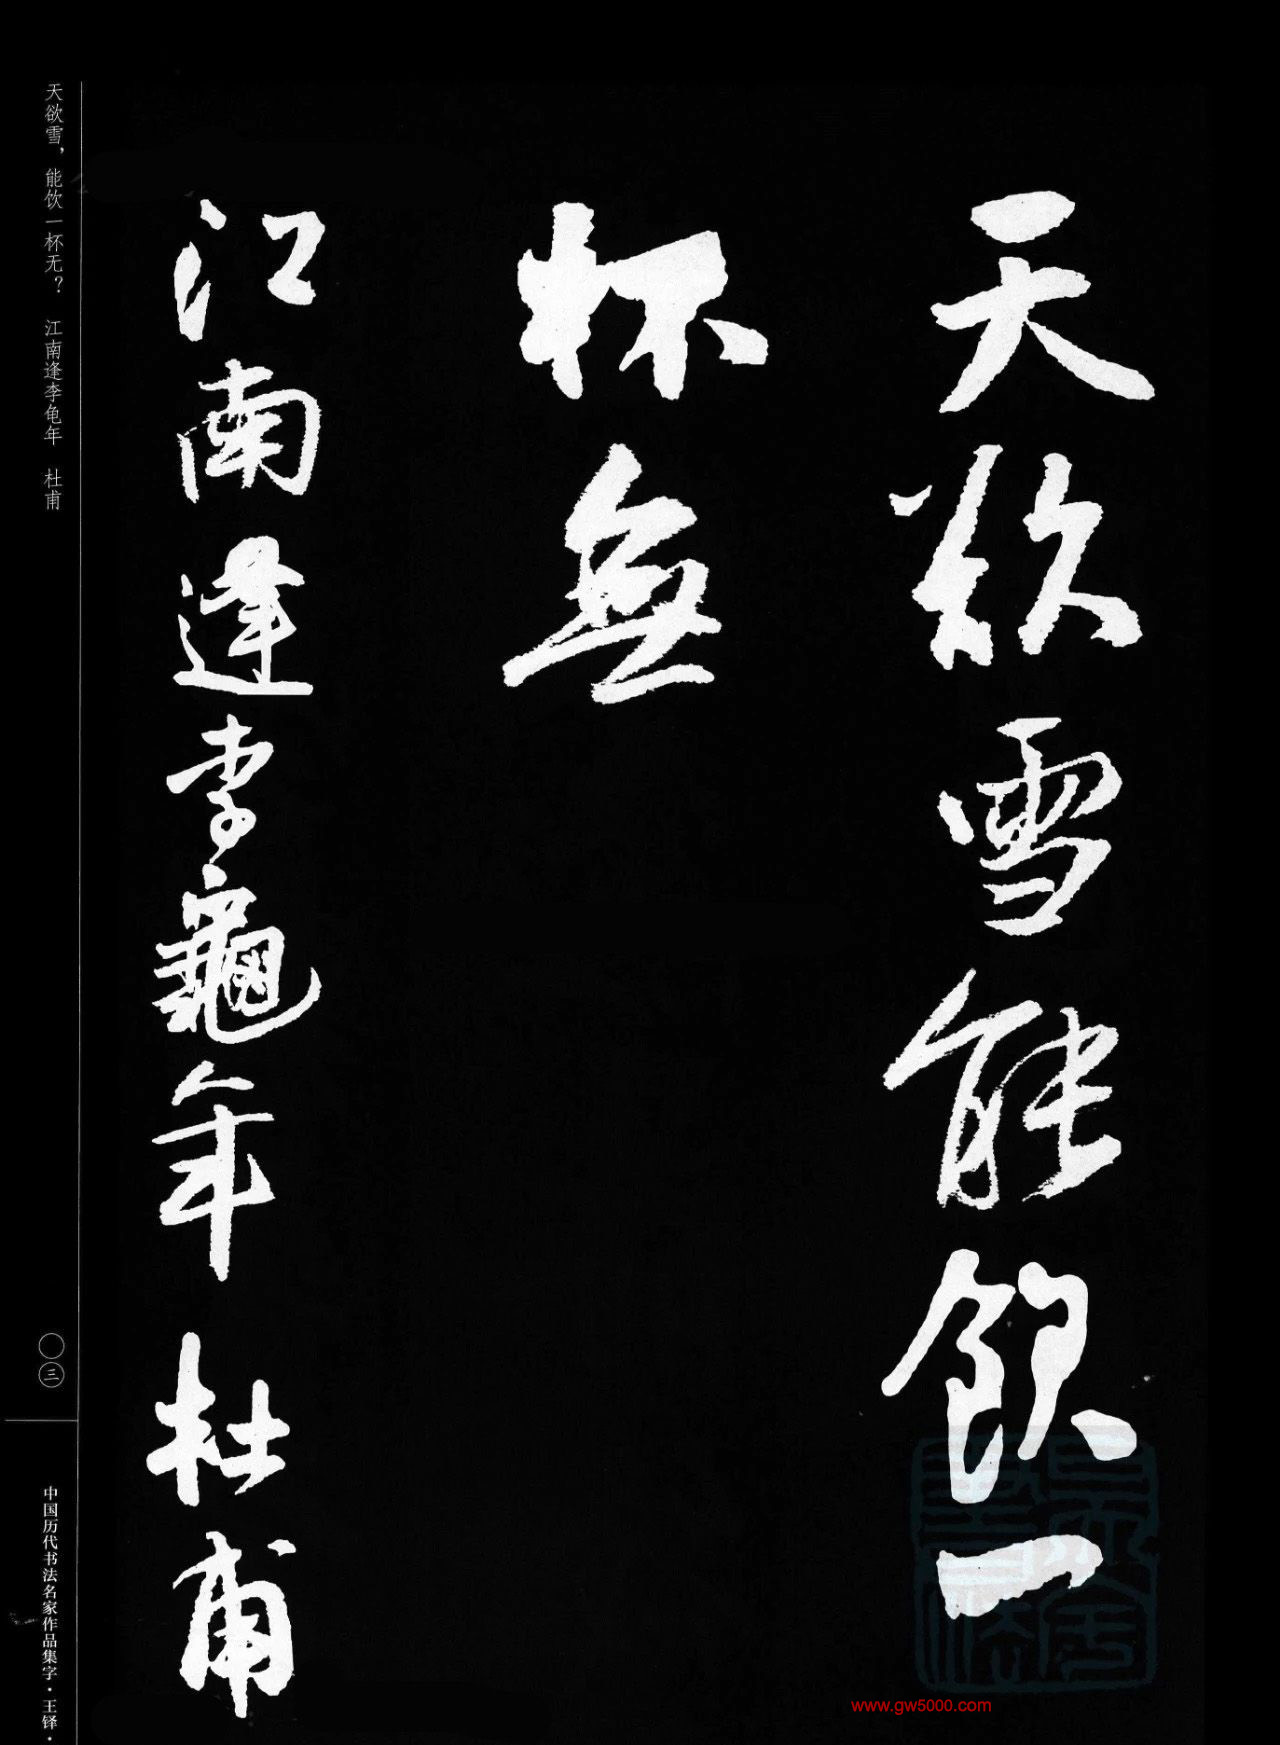 天欲雪能飲一
杯無
江南逢李龜年 杜甫
天欲雪，能饮一杯无？ 江南逢李龟年 杜甫
〇三
中国历代书法名家作品集字·王铎·
www.gw5000.com